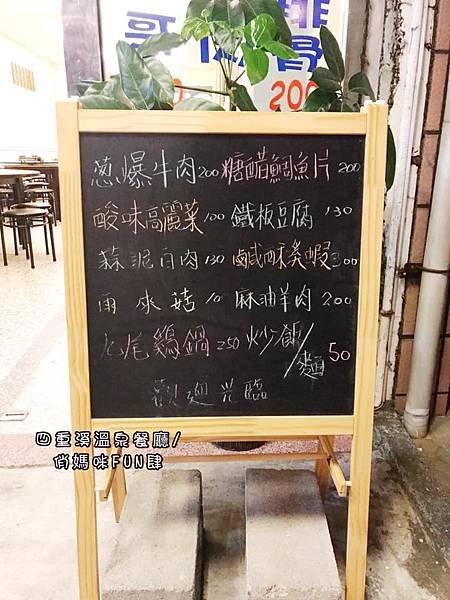 200
葱爆牛肉200 糖醋鯛魚片200
酸味高麗菜100 鐵板豆腐130
蒜泥白肉130 鹹酥溪蝦200
雨來菇 麻油羊肉200
鷄鍋250 炒飯/麵50
歡迎光臨
四重溪溫泉餐廳/
俏媽咪FUN肆